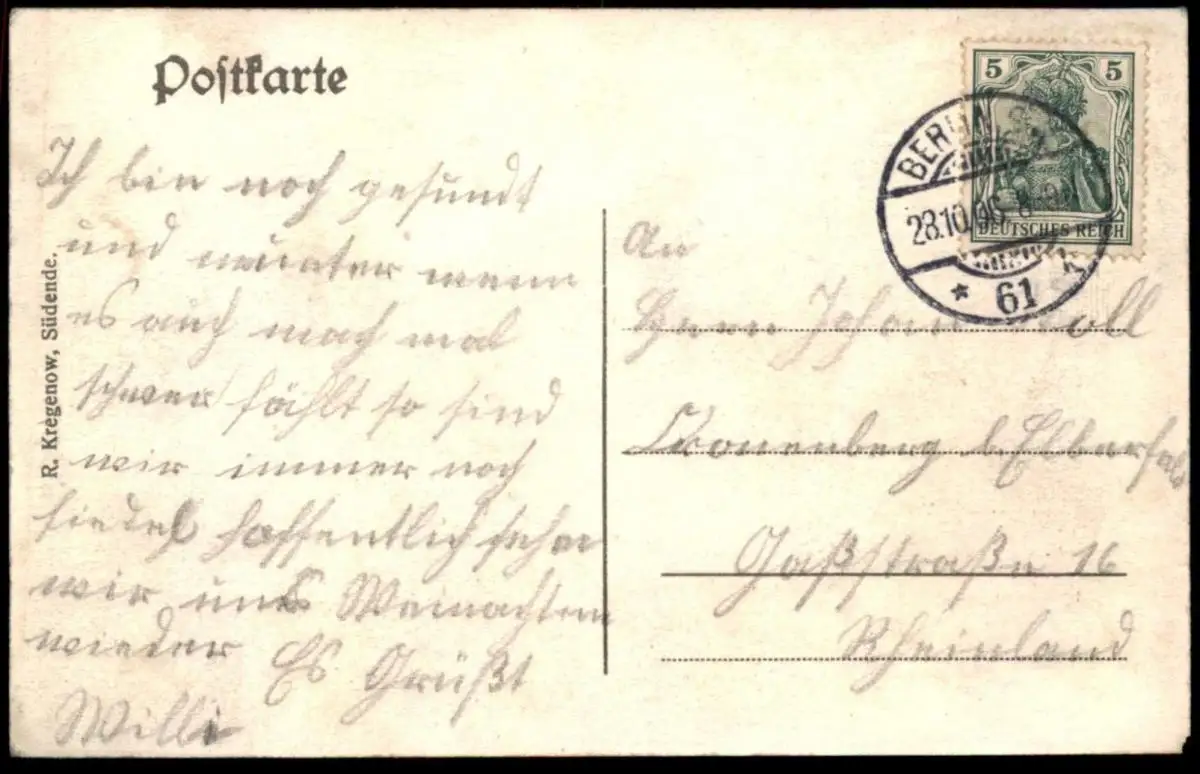 Postkarte
Ich bin noch gesund
und munter wenn
es auch mach mal
schwer fählt so sind
wir immer noch
fiedel hoffentlich sehen
wir uns Weinachten
wieder Es Grüßt
Willi
R. Kregenow, Südende.
5 5
DEUTSCHES REICH
BERLIN
28.10.
* 61 k
An
Herrn Johann
Cronenberg b. Elberfeld
16
Rheinland